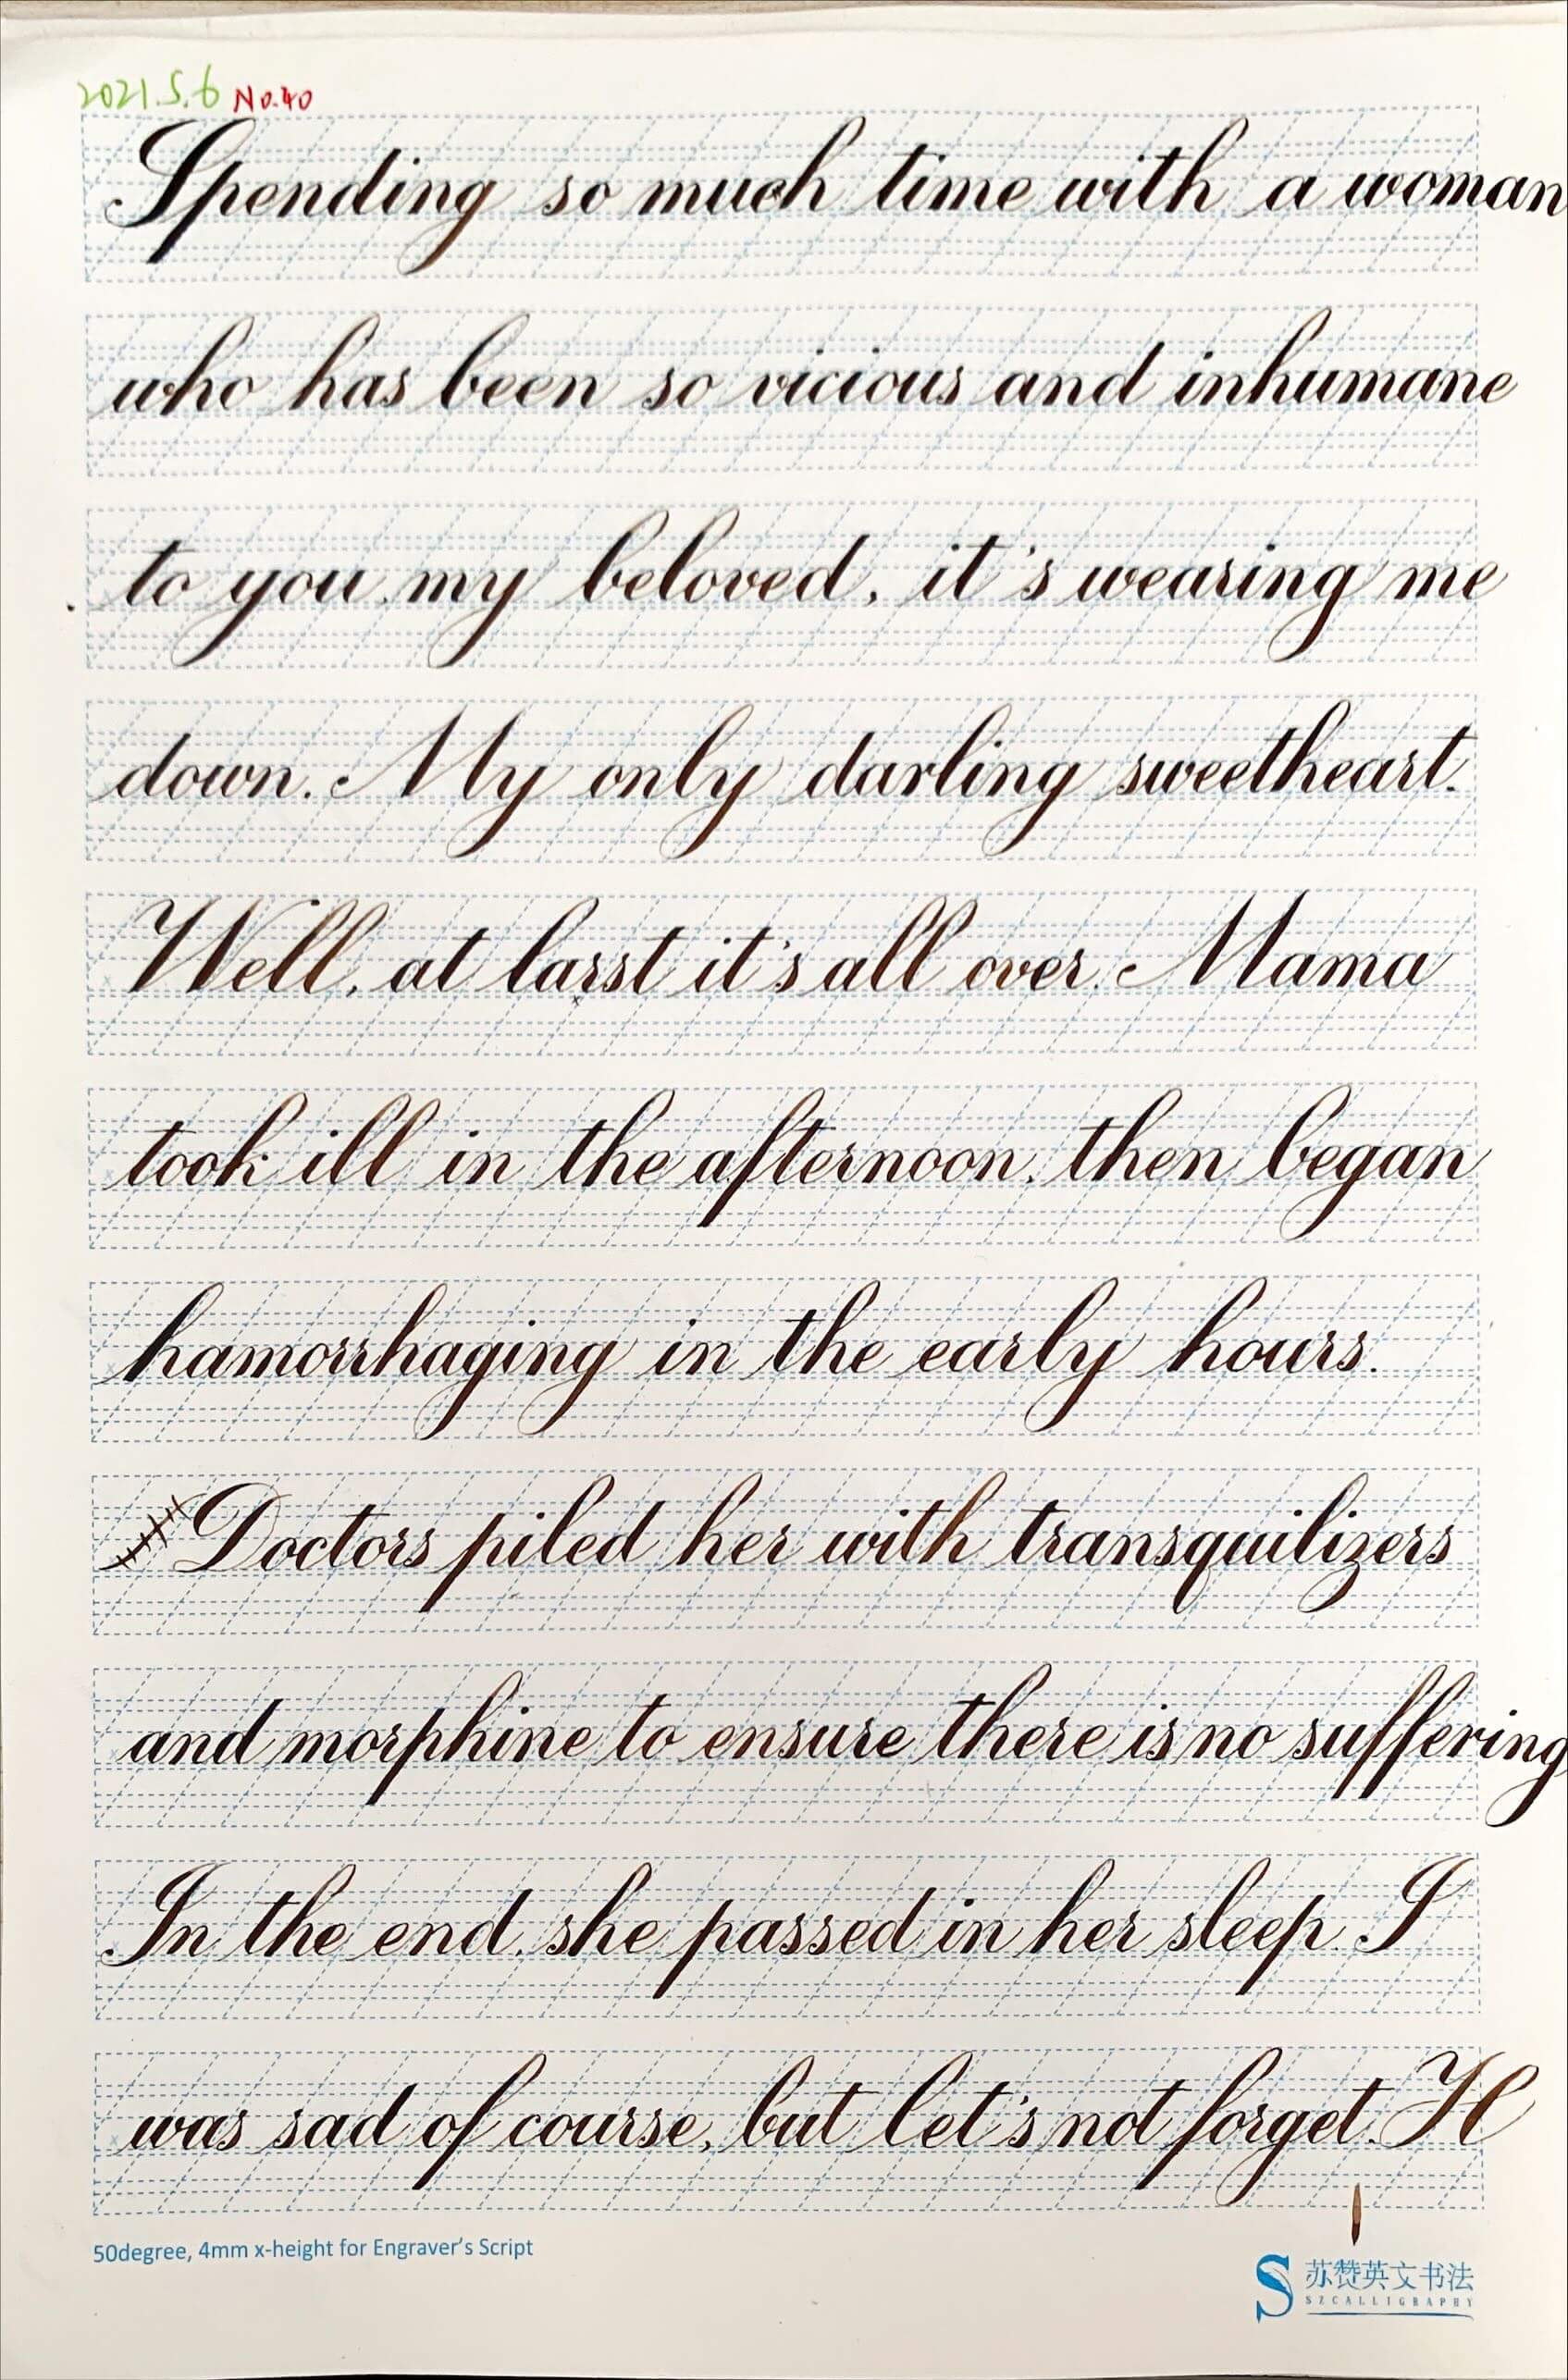 2021.5.6 No.40
Spending so much time with a woman
who has been so vicious and inhumane
to you, my beloved, it's wearing me
down. My only darling sweetheart.
Well, at larst it's all over. Mama
took ill in the afternoon, then began
hamorrhaging in the early hours.
Doctors piled her with transquilizers
and morphine to ensure there is no suffering
In the end, she passed in her sleep. I
was sad of course, but let's not forget. H
50degree, 4mm x-height for Engraver's Script
苏赞英文书法
SZCALLIGRAPHY